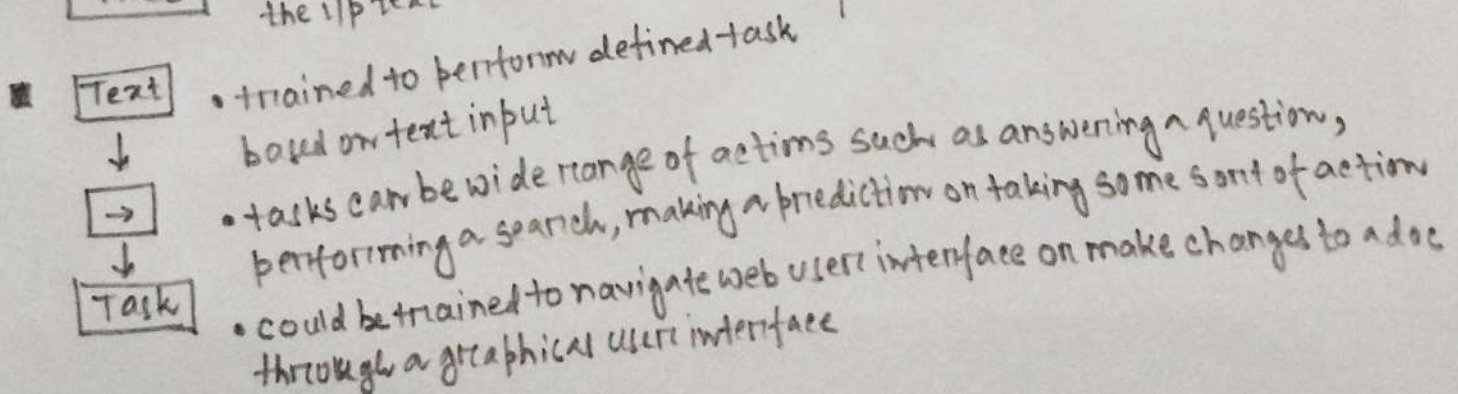 the i/p text
Text
• trained to perform defined task
based on text input
↓
→
• tasks can be wide range of actions such as answering a question,
performing a search, making a prediction or taking some sort of action
↓
Task
• could be trained to navigate web user interface or make changes to a doc
through a graphical user interface